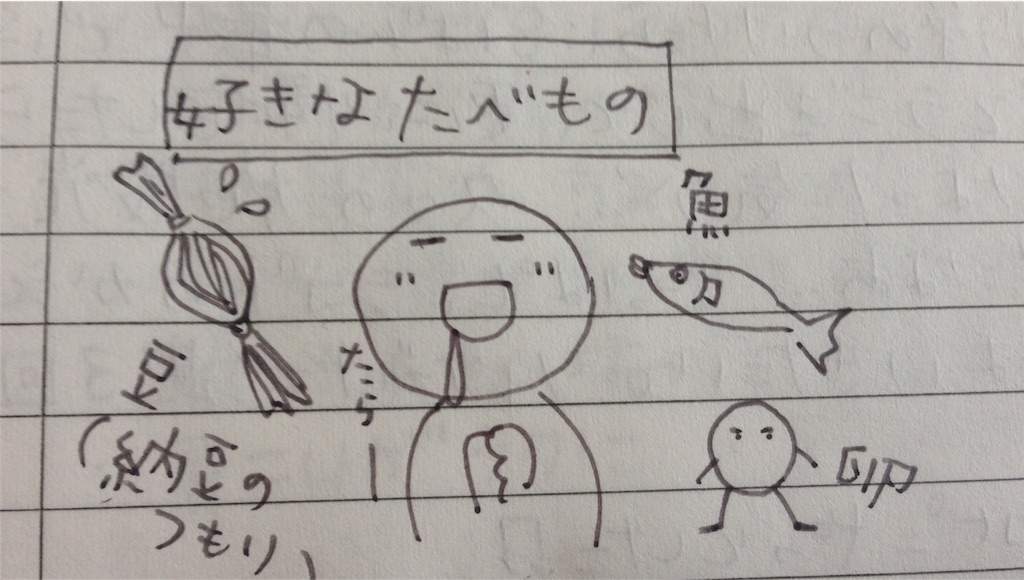 好きなたべもの
魚
豆
たらー
(納豆の
つもり)
卵